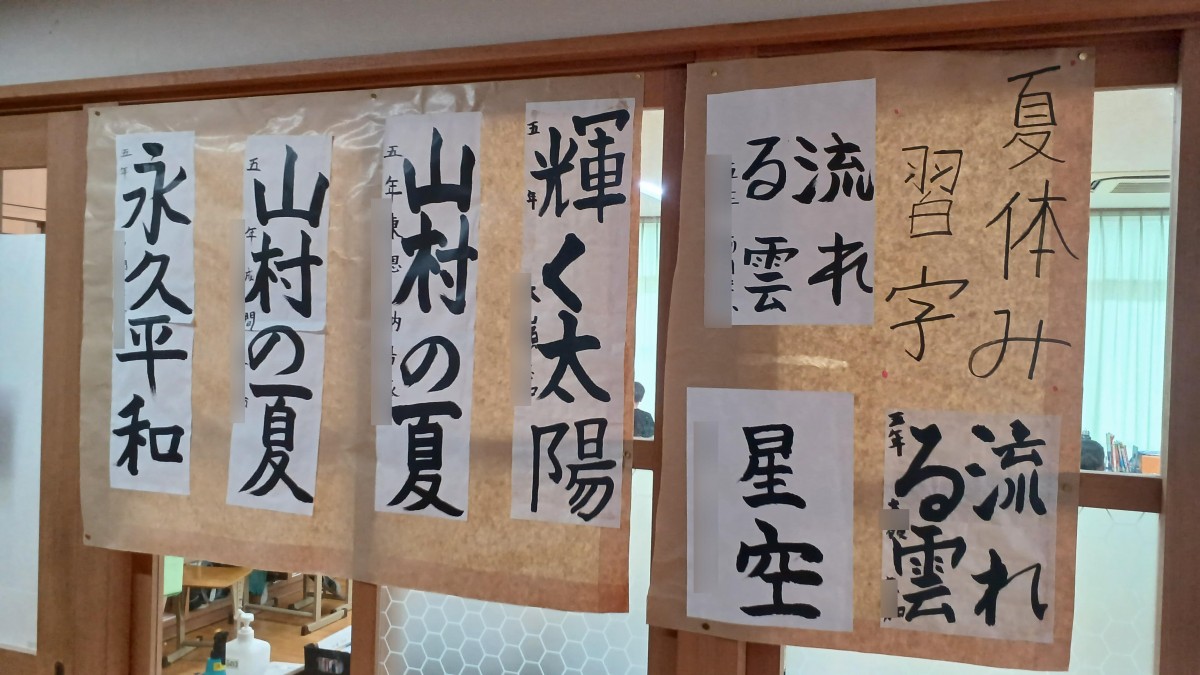 夏休み
習字
流れ
る雲
流れ
る雲
五年
星空
輝く太陽
五年
山村の夏
五年
山村の夏
五年
永久平和
五年